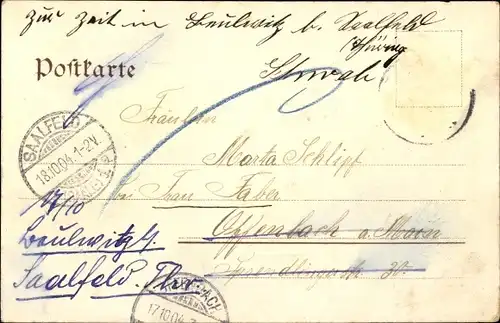 Zur Zeit in Beulwitz b. Saalfeld
Thüring
Postkarte
Fräulein
SAALFELD
18.10.04. 1-2V.
Marta Schlipf
bei Frau Faber
17/10
Offenbach a. Main
Beulwitz b.
Saalfeld. Thür.
Sprendlingerstr 30.
BACH
17.10.04.